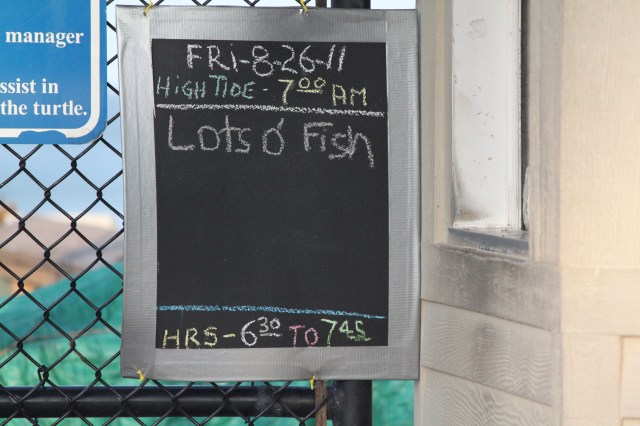 manager
ssist in
the turtle.
FRi-8-26-11
HiGH TIDE - 7:00 AM
Lots o' Fish
HRS - 6:30 TO 7:45